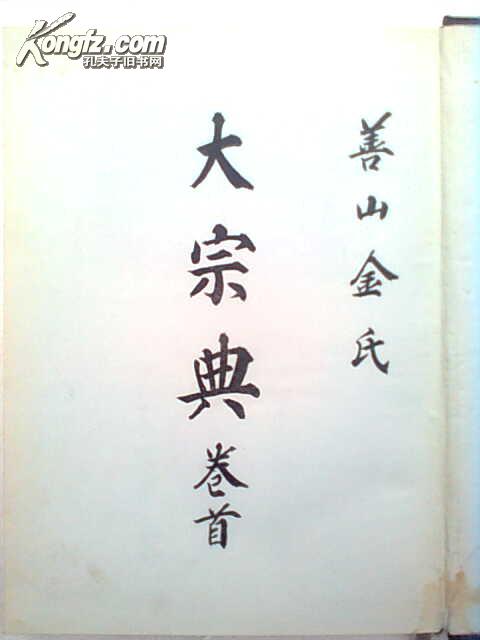 Kongfz.com
孔夫子旧书网
善山金氏
大宗典卷首